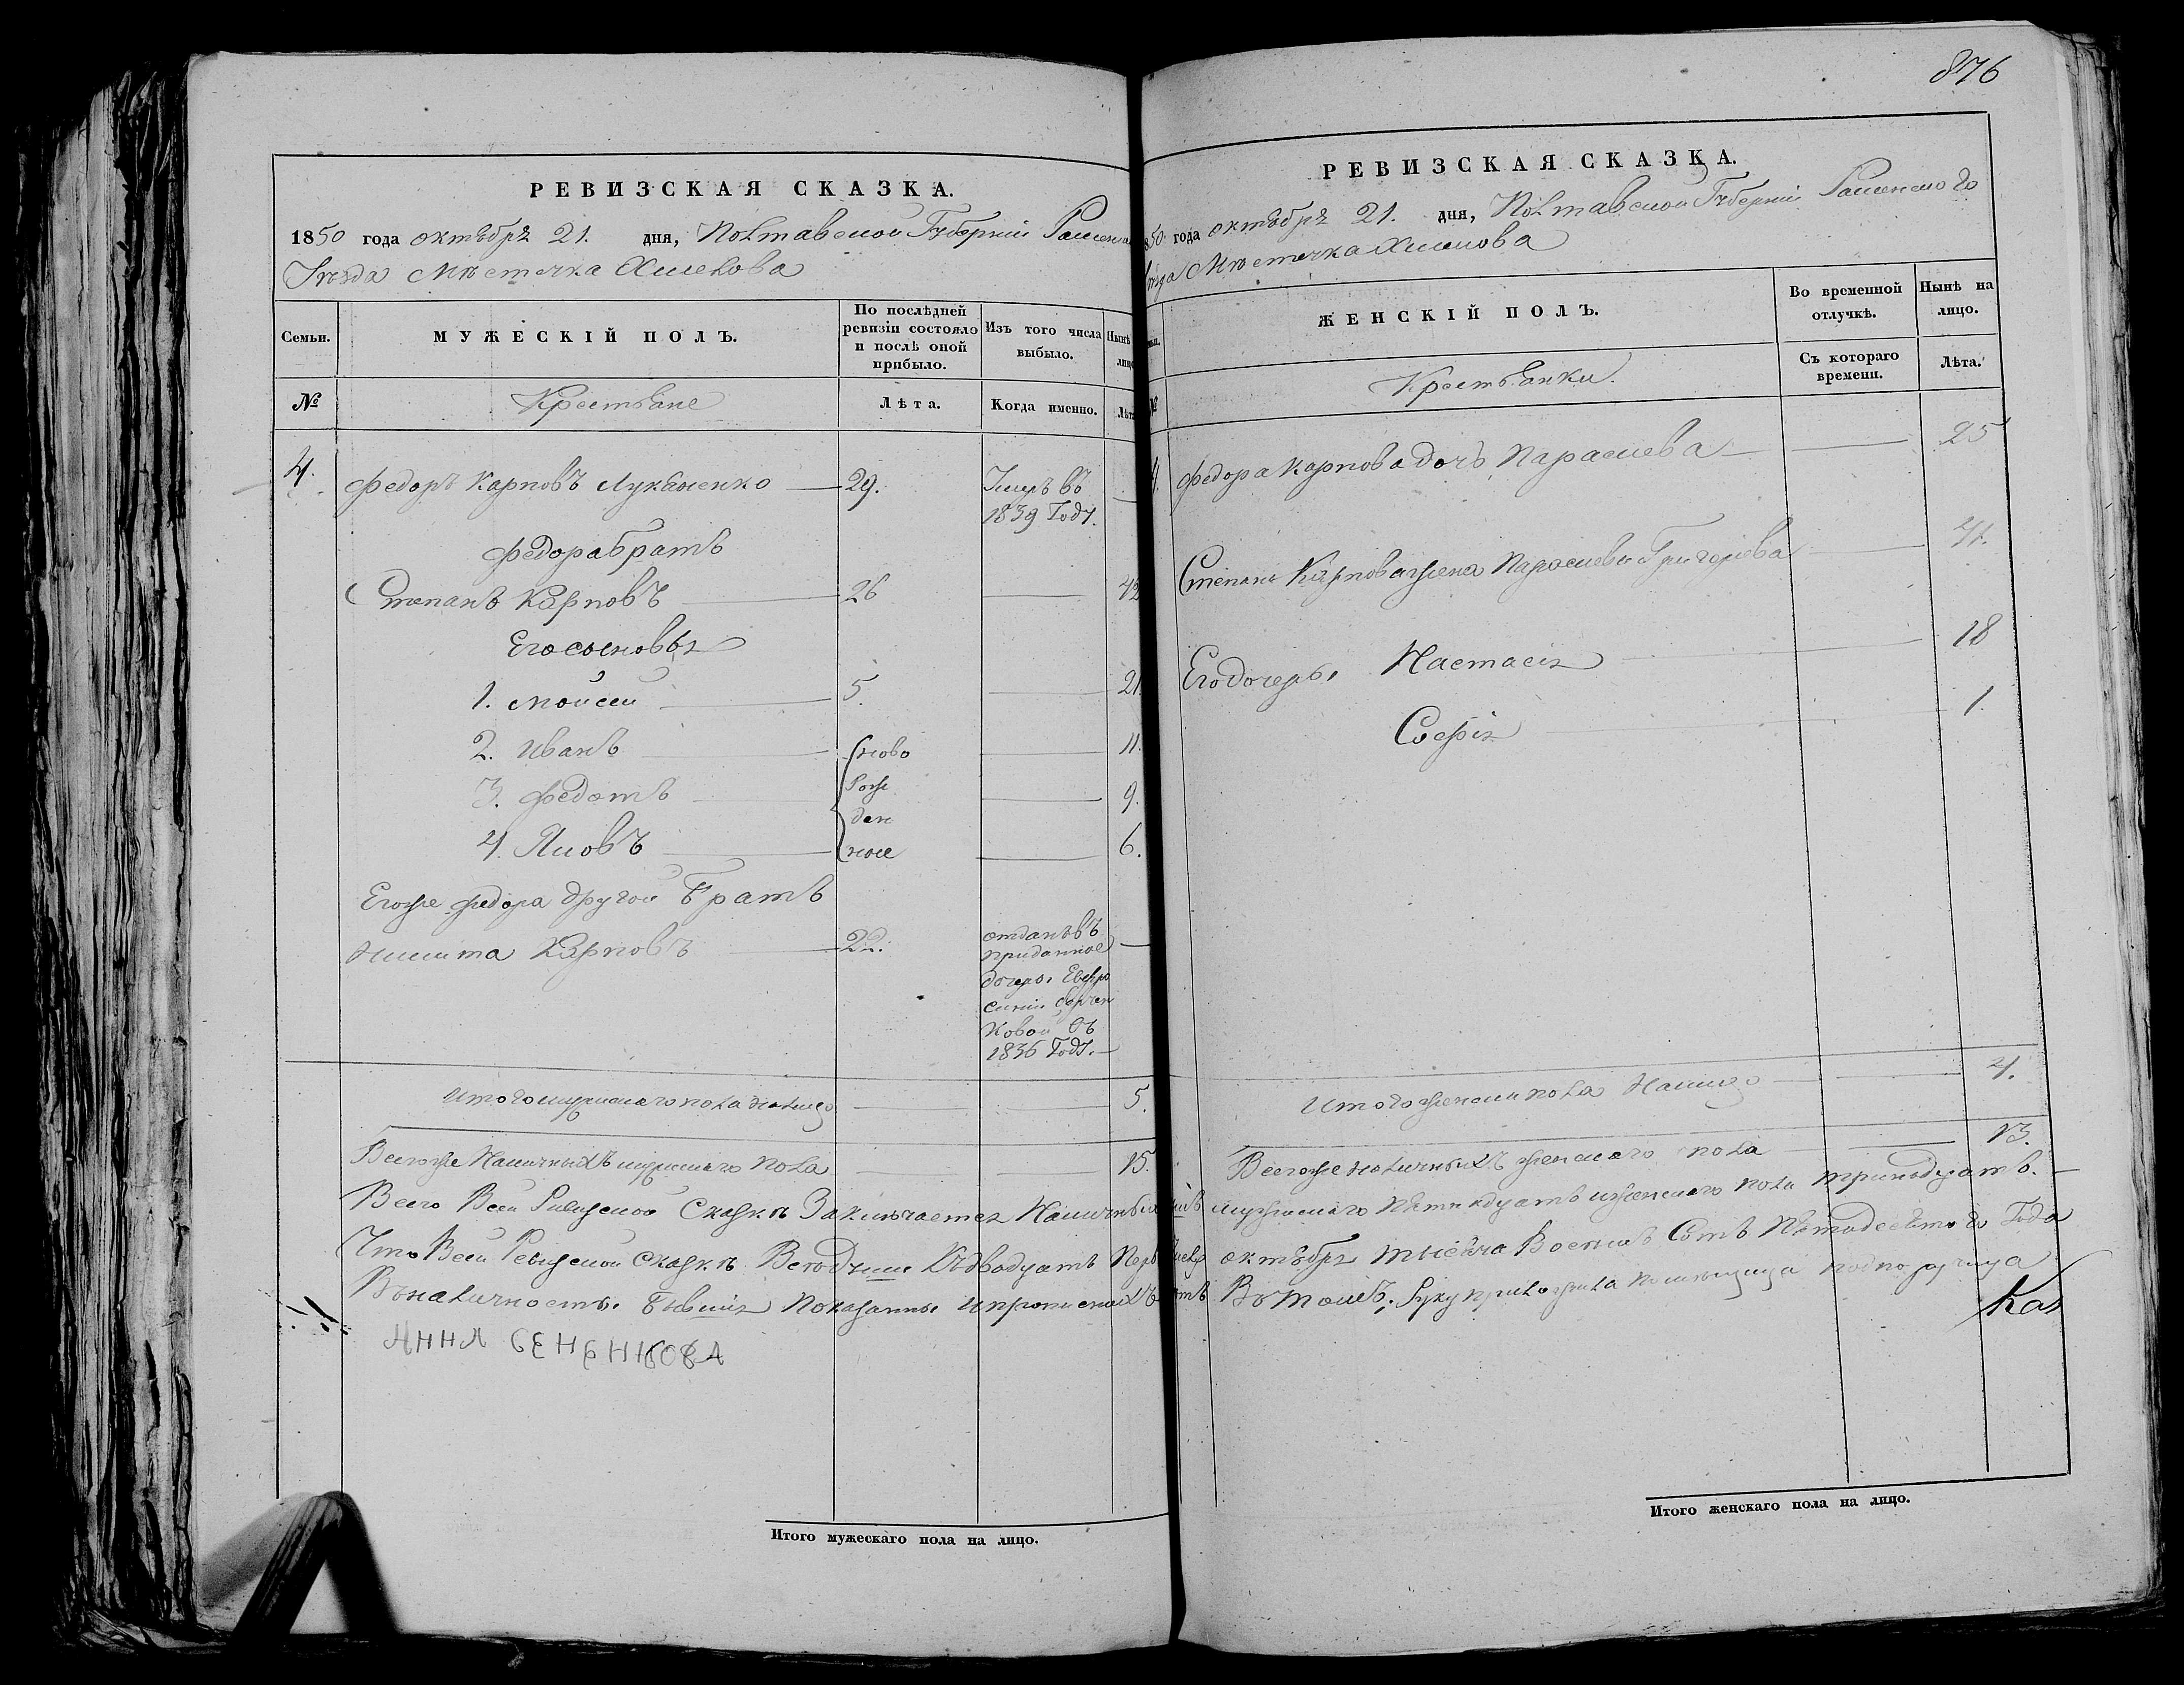 876
РЕВИЗСКАЯ СКАЗКА.
1850 года октября 21. дня, Полтавской Губерніи Роменска
Уезда Местечка Хмелова
Семьи.
МУЖЕСКІЙ ПОЛЪ.
По послѣдней ревизіи состояло и послѣ оной прибыло.
Изъ того числа выбыло.
Нынѣ
лицо
№
Крестьяне
Лѣта.
Когда именно.
Лѣта
4. Федоръ Карповъ Лукьяненко 29. Умеръ въ
1839 Году.
Федора братъ
Степанъ Карповъ 26 42
Его сыновья
1. Моисей 5. 21.
2. Иванъ ново 11.
3. Федотъ рож 9.
ден
4. Яковъ ные 6.
Егоже Федора другой братъ
Никита Карповъ 22. отданъ въ
приданное
дочери Евфро
синіи
ковой въ
1836 Году.
Итого мужескаго пола налицо 5.
Всегоже Наличныхъ мужескаго пола 15.
РЕВИЗСКАЯ СКАЗКА.
1850 года октября 21. дня, Полтавской Губерніи Роменскаго
Уезда Местечка Хмелова
ЖЕНСКІЙ ПОЛЪ.
Во временной отлучкѣ.
Нынѣ на лицо.
№
Крестьянки.
Съ котораго времени.
Лѣта.
4. Федора Карпова дочь Параскева 25
Степана Карпова жена Параскева Григорьева 41.
Его дочери Настасія 18
Софія 1.
Итого женска пола Налицо 4.
Всегоже наличныхъ женскаго пола 13.
Всего Всей Ревизской Сказкѣ Заключается Наличныхъ мужескаго пятнадцать и женскаго пола тринадцать.
Что Всей Ревизской Сказкѣ двадцать Перваго октября тысяча Восемь Сотъ Пятидесятого Года
Вналичности Бывшія Показанны и прописныхъ нѣтъ Въ томъ, Руку приложила помѣщица подпоручица
АННА СЕМЕНКОВА
Итого мужескаго пола на лицо.
Итого женскаго пола на лицо.